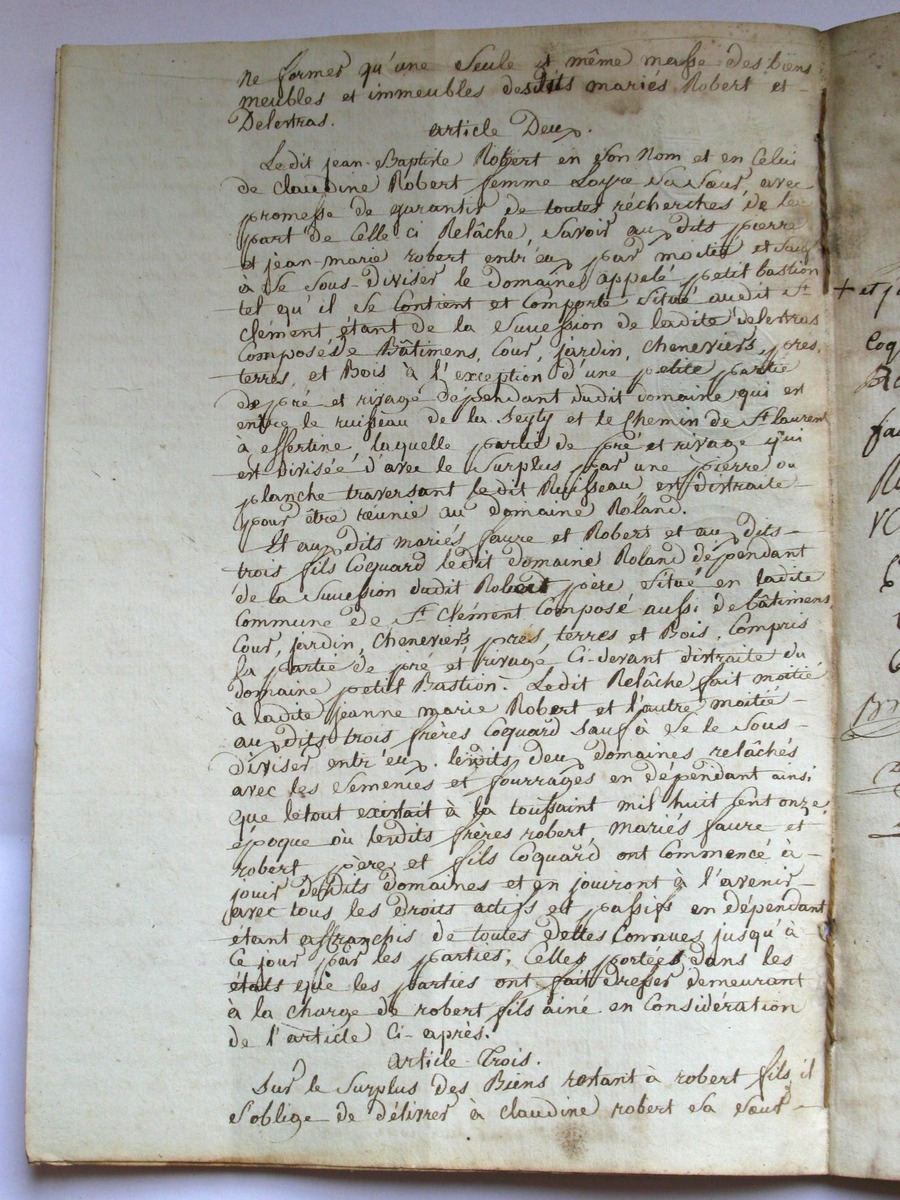 ne former qu'une seule et même masse des biens
meubles et immeubles desdits mariés Robert et -
Delestras.
article Deux.
Ledit jean-Baptiste Robert en son nom et en Celui
de claudine Robert femme Loyre sa sœur, avec
promesse de garantir de toutes récherches de la
part de Celle ci Relâche, savoir aux dits pierre
et jean-marie robert entr'eux par moitié et sauf
à se sous-diviser le domaine appelé petit bastion
tel qu'il se Contient et Comporte situé audit St
Clément étant de la succession de ladite delestras
Composé de Bâtimens, Cour, jardin, cheneviers, prés,
terres, et Bois à l'exception d'une petite partie
de pré et rivage dépendant dudit domaine qui est
entre le ruisseau de la Seyty et le Chemin de St Laurent
à essertine, laquelle partie de pré et rivage qui
est divisée d'avec le surplus par une pierre ou
planche traversant ledit Ruisseau, est distraite -
pour être réunie au domaine Roland.
Et aux dits mariés faure et Robert et aux dits -
trois fils Coquard ledit domaine Roland dépendant
de la succession dudit Robert père situé en ladite
Commune de St Clément Composé aussi de bâtimens,
Cour, jardin, cheneviers, prés, terres et Bois, Compris
la partie de pré et rivage, Ci-devant distraite du
domaine petit Bastion. Ledit Relâche fait moitié
à ladite jeanne marie Robert et l'autre moitié -
aux dits trois frères Coquard sauf à se le sous-
diviser entr'eux. lesdits deux domaines relâchés
avec les semences et fourrages en dépendant ainsi
que le tout existait à la toussaint mil huit cent onze
époque où lesdits frères robert mariés faure et
robert père et fils Coquard ont Commencé à -
jouir desdits domaines et en jouiront à l'avenir -
avec tous les droits actifs et passifs en dépendant
étant affranchis de toutes dettes Connues jusqu'à -
Ce jour par les parties, Celles portées dans les
états que les parties ont fait dresser demeurant
à la charge de robert fils ainé en Considération
de l'article Ci-après.
article Trois.
Sur le surplus des Biens restant à robert fils il
s'oblige de délivrer à claudine robert sa sœur -
+ et